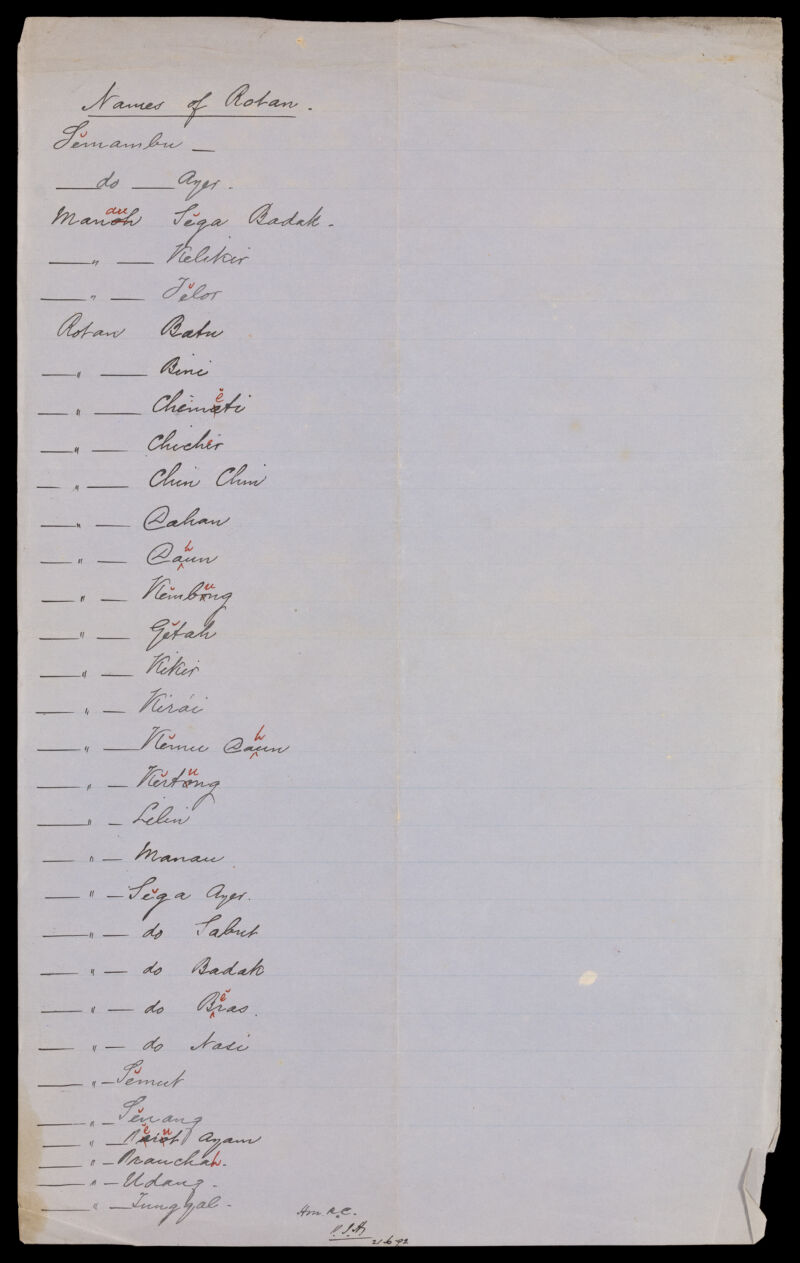 Names of Rotan.
Sĕmambu —
— do — Ayer.
Manau Sĕga Badak.
— " — Kelikir
— " — Jĕlor
Rotan Batu
— " — Bini
— " — Chĕmĕti
— " — Chichir
— " — Chin Chin
— " — Dahan
— " — Dahun
— " — Kĕmbung
— " — Gĕtah
— " — Kikir
— " — Kirai
— " — Kĕmu Dahun
— " — Kĕrtung
— " — Lilin
— " — Manau
— " — Sĕga Ayer.
— " — do Sabut
— " — do Badak
— " — do Bĕras.
— " — do Nasi
— " — Sĕmut
— " — Sĕnang
— " — Ayam
— " — Pranchah.
— " — Udang.
— " — Tunggal.
Hon. R.C.
21.6.92